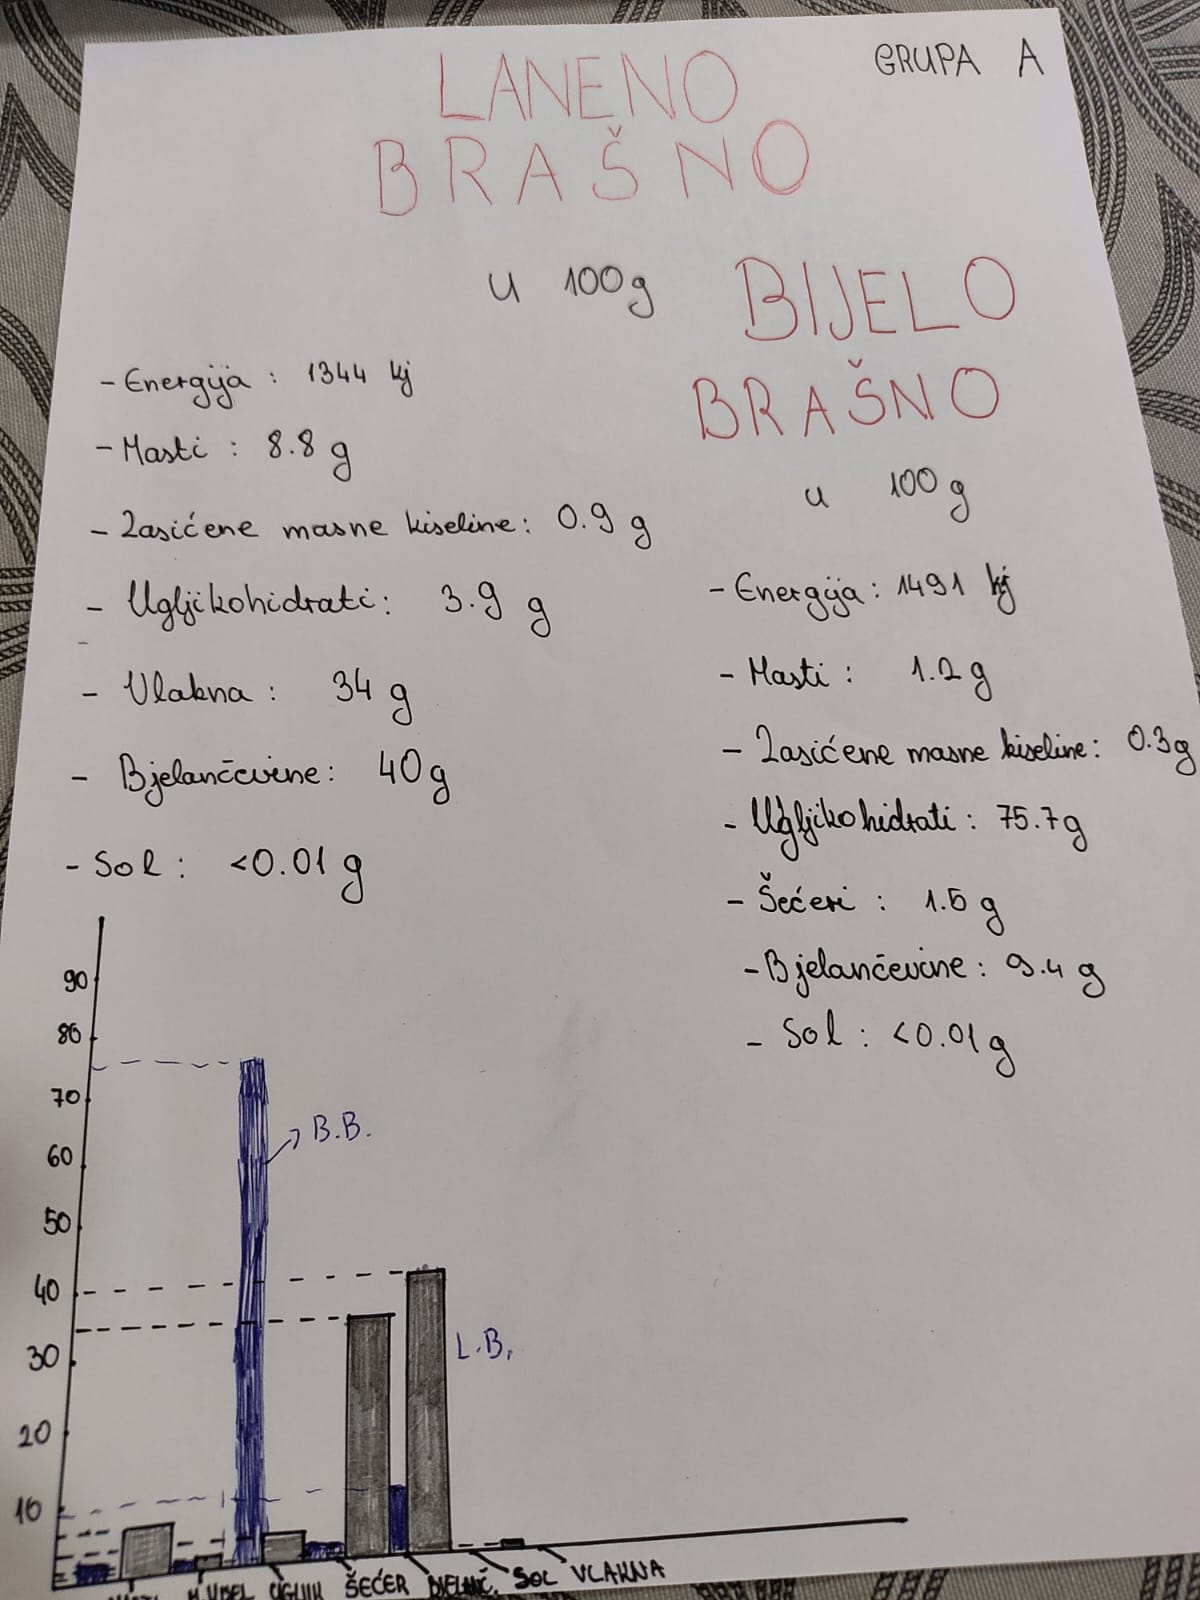 GRUPA A
LANENO
BRAŠNO
u 100g
- Energija : 1344 kj
- Masti : 8.8 g
- Zasićene masne kiseline: 0.9 g
- Ugljikohidrati: 3.9 g
- Vlakna : 34 g
- Bjelančevine: 40g
- Sol : <0.01 g
BIJELO
BRAŠNO
u 100 g
- Energija : 1491 kj
- Masti : 1.2 g
- Zasićene masne kiseline: 0.3g
- Ugljikohidrati : 75.7g
- Šećeri : 1.5 g
- Bjelančevine : 9.4 g
- Sol : <0.01g
90
80
70
60
50
40
30
20
10
B.B.
L.B.
ŠEĆER
BJELANČ.
SOL
VLAKNA